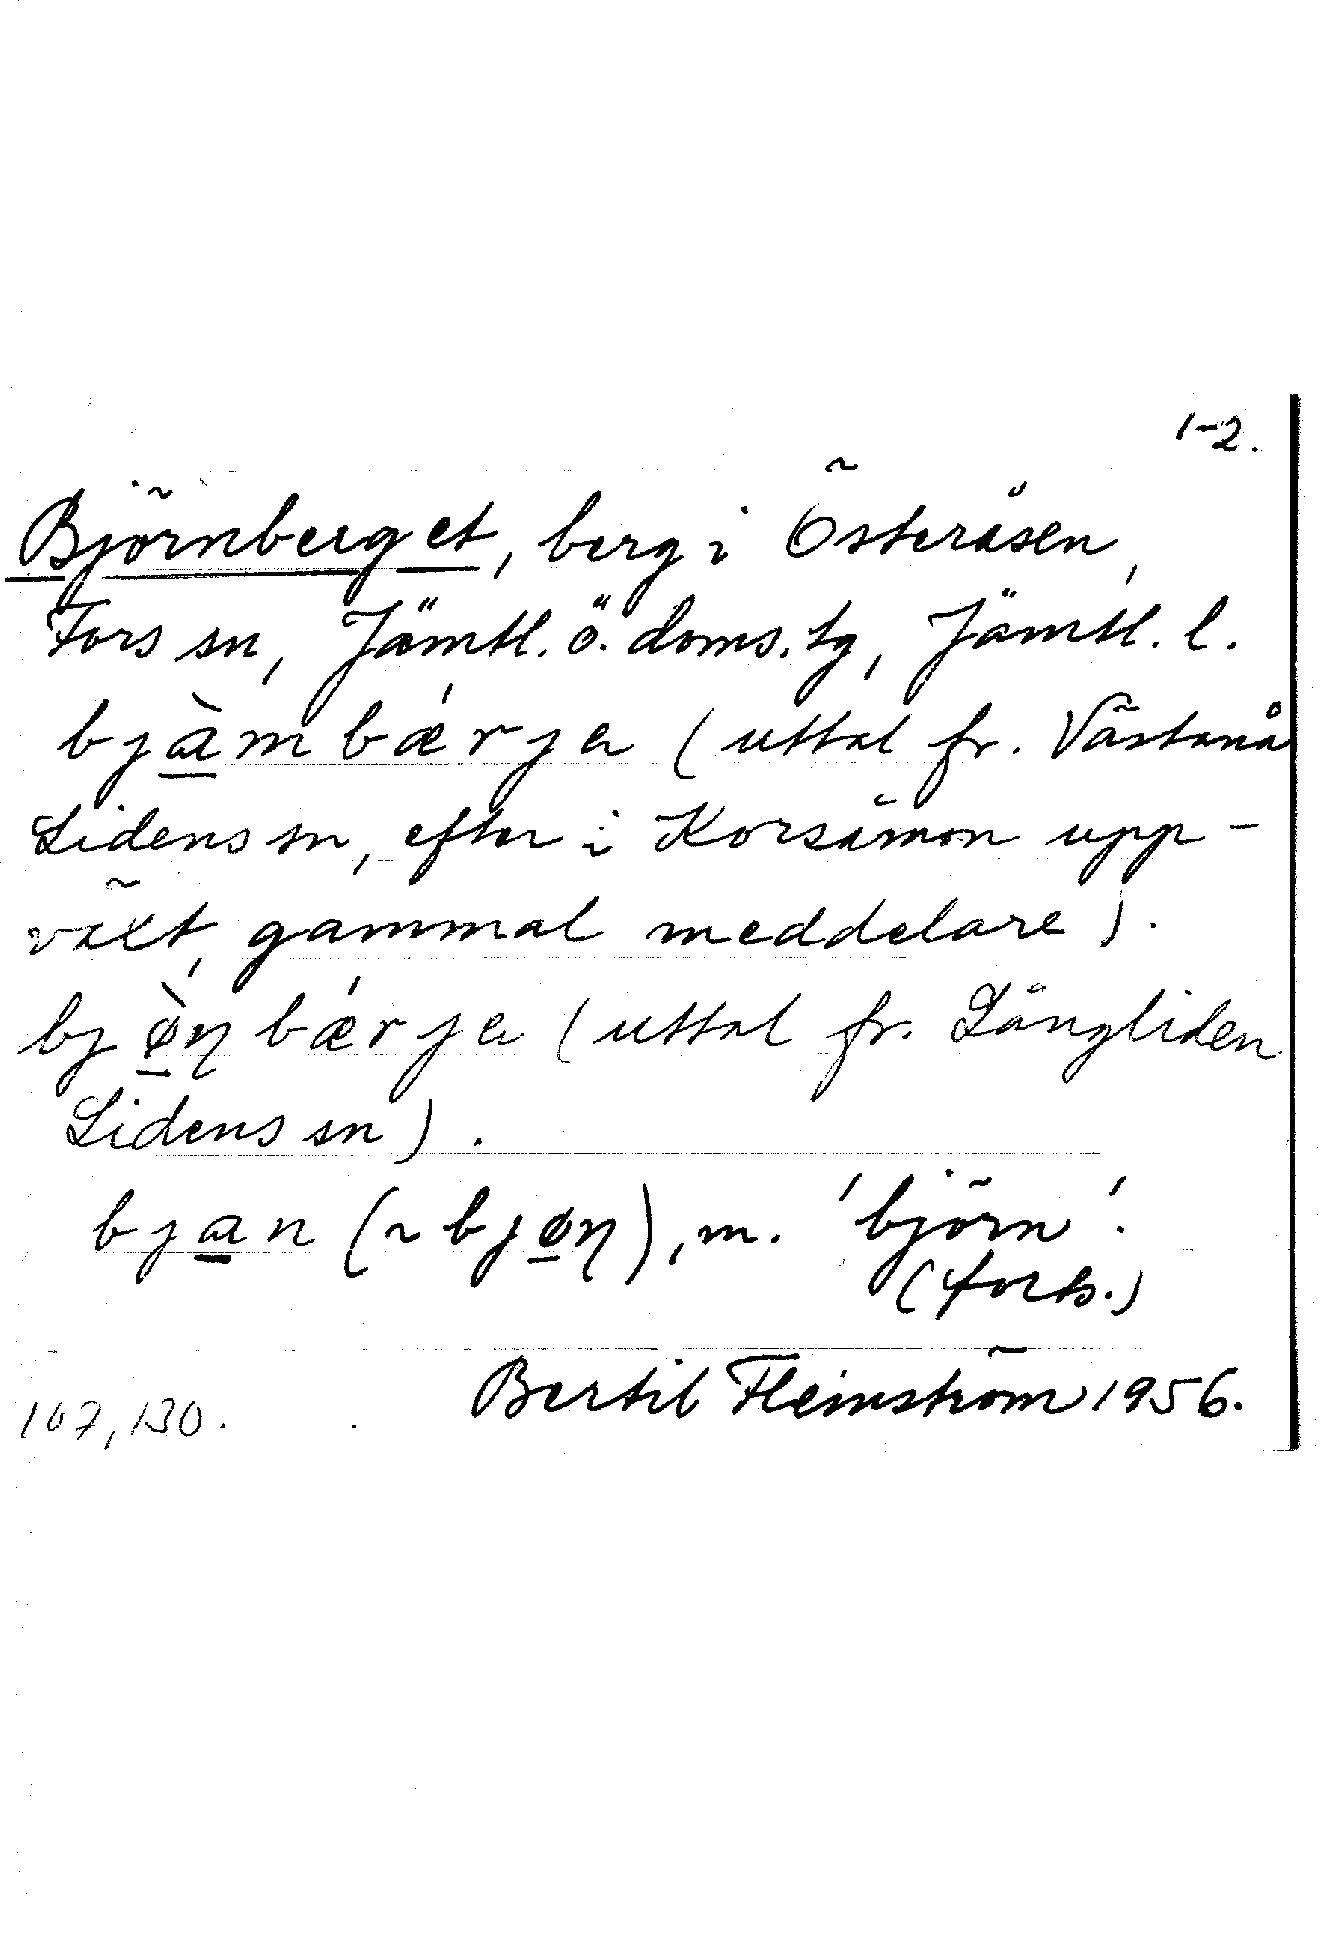 1-2.
Björnberget, berg i Österåsen,
Fors sn, Jämtl. ö. doms. tg, Jämtl. l.
bjàmbǽrja (uttal fr. Västanå
Lidens sn, efter i Korsåmon upp-
växt, gammal meddelare).
bjø̀ηbǽrja (uttal fr. Långliden
Lidens sn).
bjan (~ bjøη), m. 'björn'.
(forts.)
Bertil Flemström 1956.
107,130.